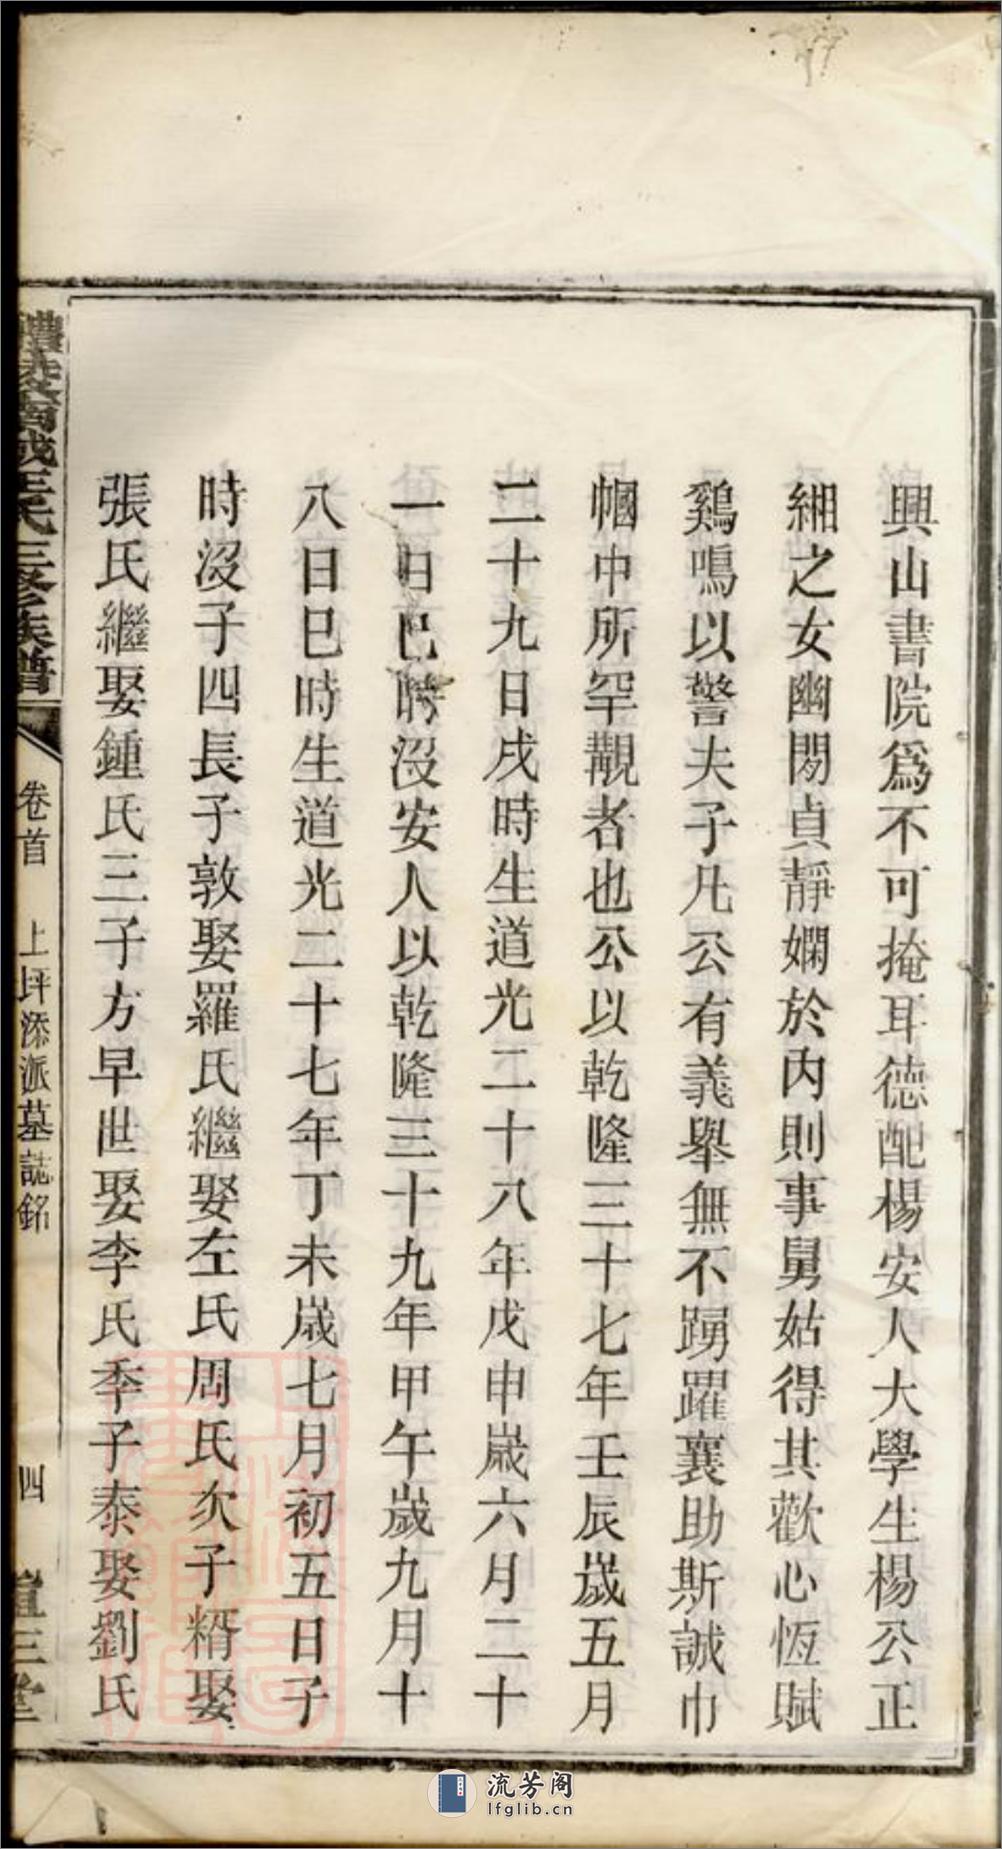 興山書院爲不可掩耳德配楊安人大學生楊公正
緗之女幽閒貞靜嫻於內則事舅姑得其歡心恆賦
鷄鳴以警夫子凡公有義舉無不踴躍襄助斯誠巾
幗中所罕覯者也公以乾隆三十七年壬辰歲五月
二十九日戌時生道光二十八年戊申歲六月二十
一日巳時沒安人以乾隆三十九年甲午歲九月十
八日巳時生道光二十七年丁未歲七月初五日子
時沒子四長子敦娶羅氏繼娶左氏周氏次子糈娶
張氏繼娶鍾氏三子方早世娶李氏季子泰娶劉氏
醴陵南城王氏三修族譜
卷首 上坪添派墓誌銘
四
三堂
流芳阁
lfglib.cn